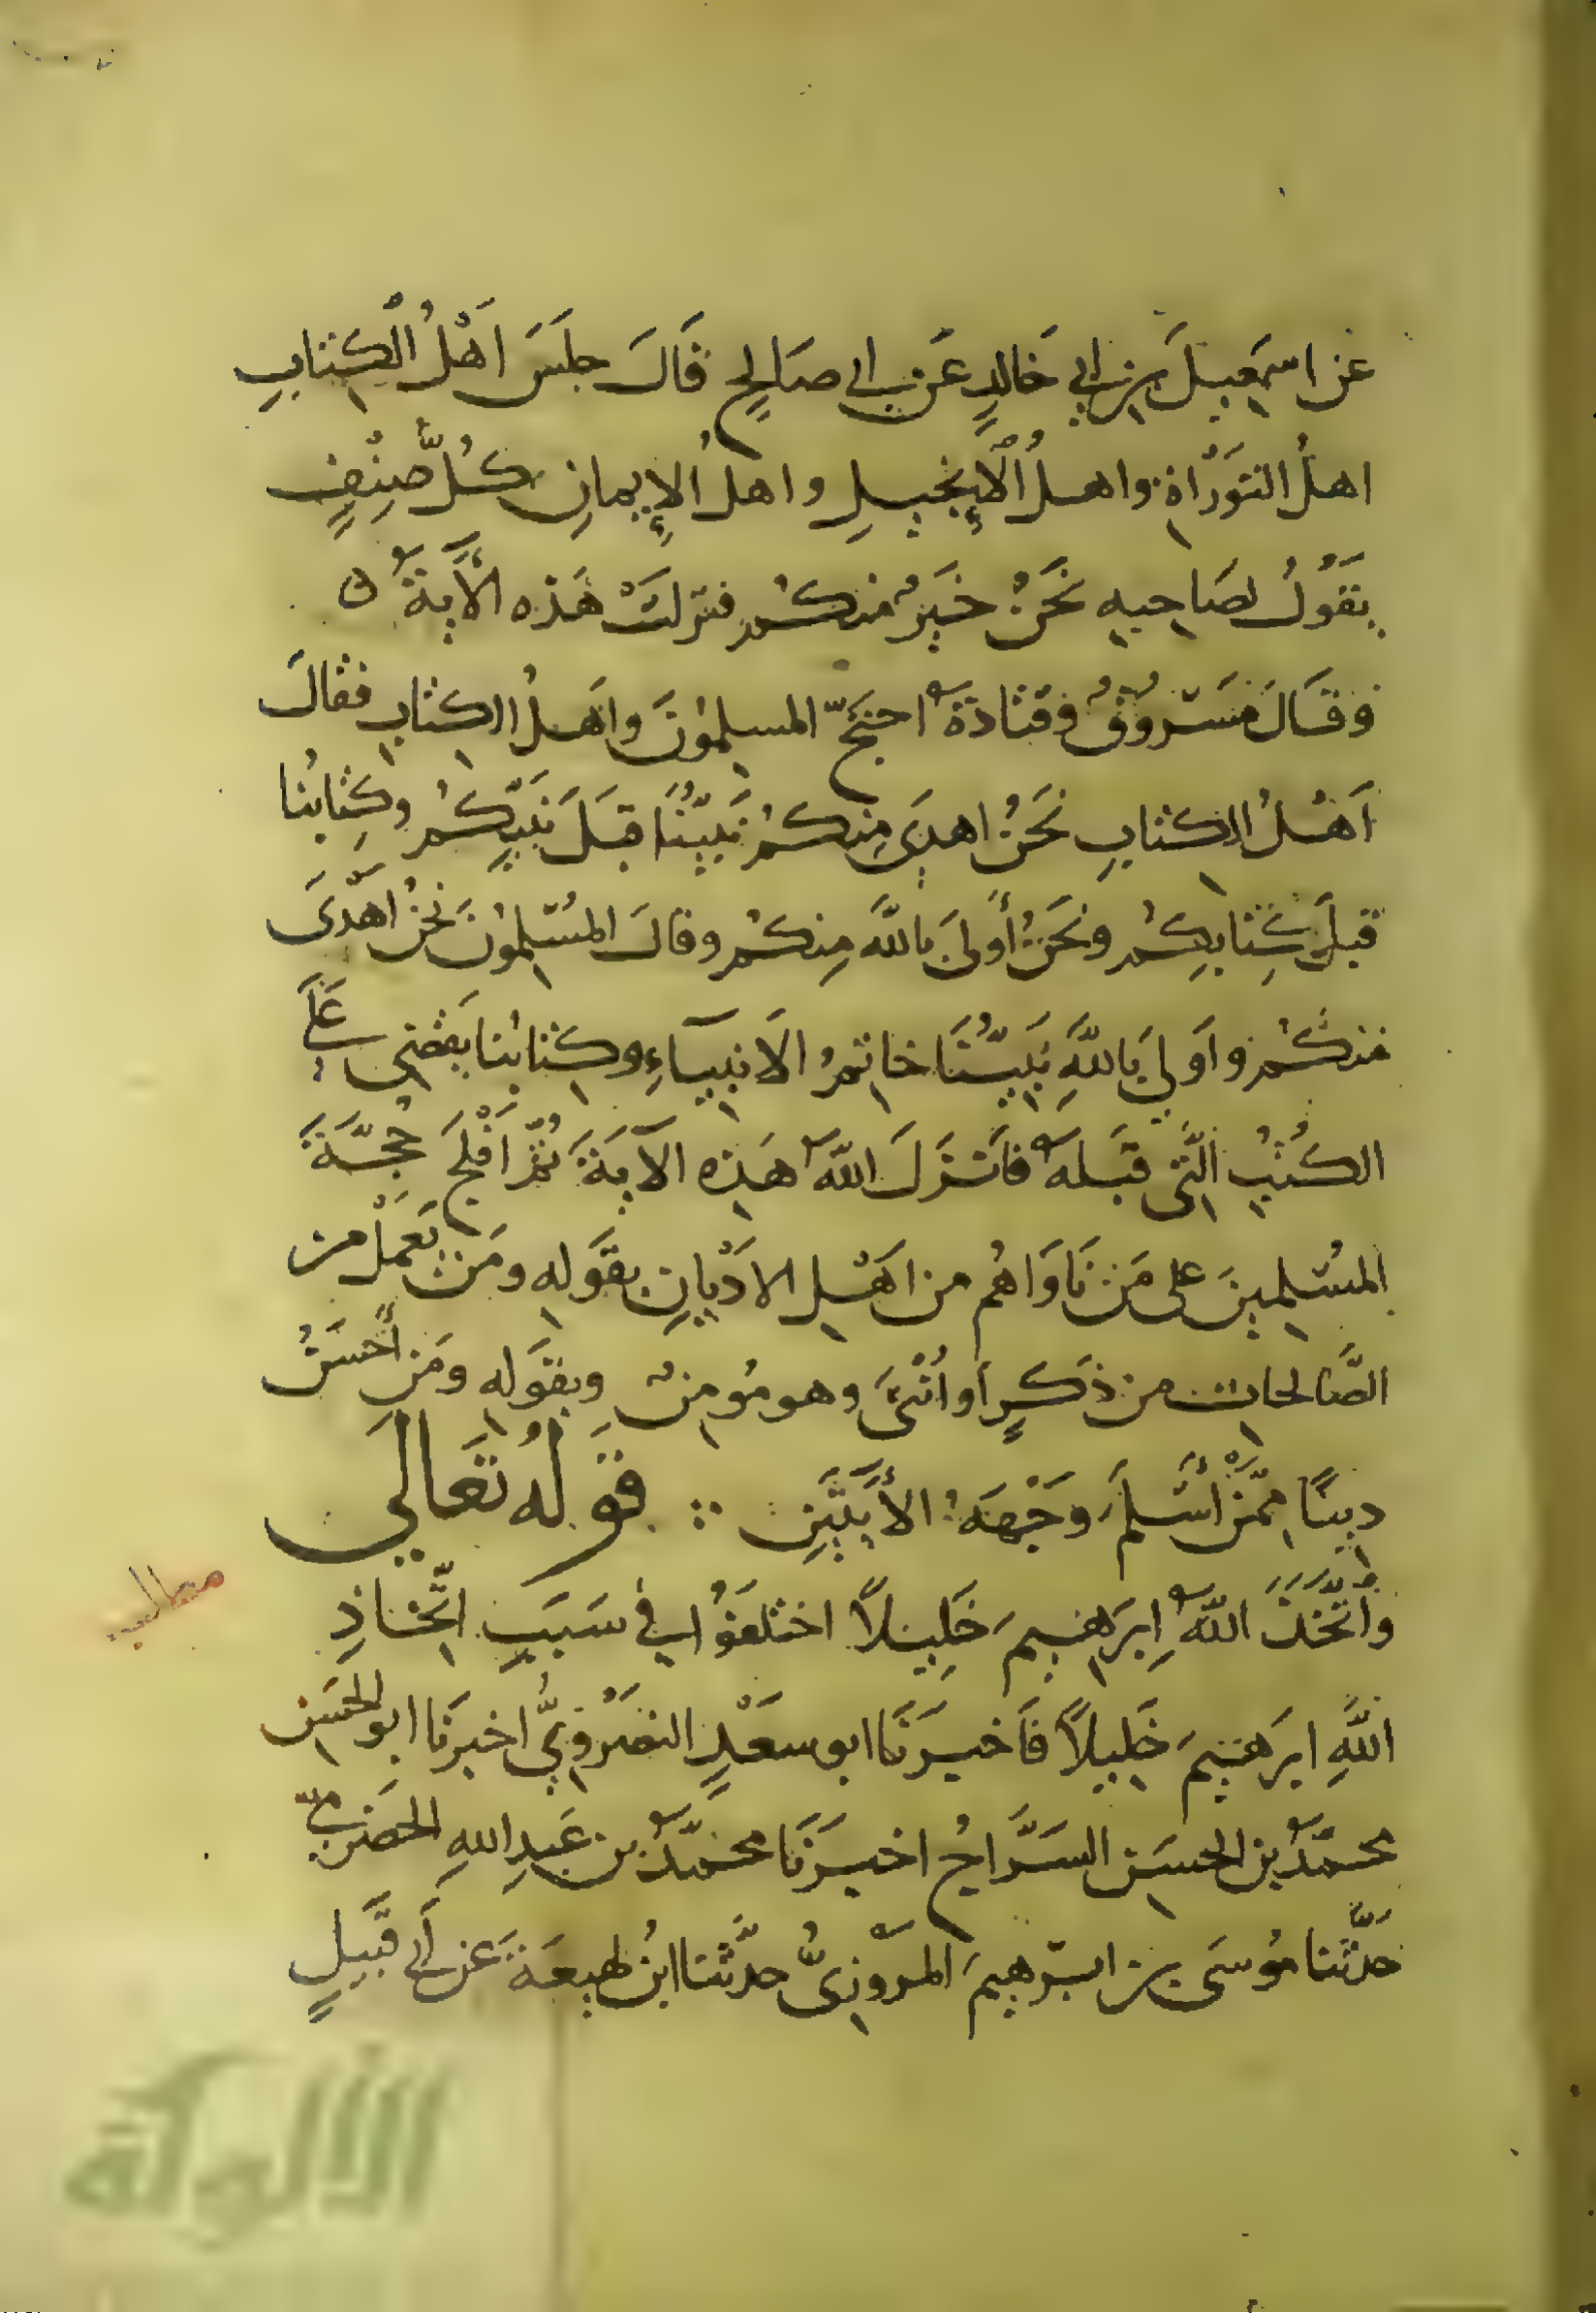 عَن اسمَعِيلَ بنِ ابِي خَالدٍ عَن ابى صَالِحٍ قَالَ جلَسَ اَهْلُ الْكِتَابِ
اهلُ التَوْرَاةِ واهلُ الْإِنجيلِ واهلُ الإِيمانِ كُلُّ صِنْفٍ
يقَوُلُ لصَاحِبِهِ نَحَنُ خَيرٌ منكُمْ فنزلتْ هَذه الآية ه
وقَالَ مَسْروقٌ وقتادَةُ احتجَّ المسلِمُونَ واَهلُ الكِتابِ فقالَ
اَهْلُ الكتابِ نَحَنُ اهدَى مِنكُمْ نَبيّنَُا قبلَ نَبيّكُمْ وكِتابُنا
قبلَ كِتابِكُمْ ونَحَنُ أَولَى باللَّهِ مِنكُمْ وقالَ المُسْلِمُونَ نَحنُ اَهْدَى
منكُمْ واَولَى بَاللَّهِ نَبيّنَُا خاتِمُ الاَنبيَآءِ وكِتابُنا يَقضِى عَلَى
الكُتُبِ الَّتِى قبلَهُ فاَنزَلَ اللَّهُ هَذِهِ الآيَةَ ثُمَّ اَفْلَجَ حُجَّةَ
المسُلِمينَ على مَن نَاوَاهُم من اَهْلِ الاَدْيانِ بقَولِهِ ومَن يَعمَلْ من
الصَّالحاتِ من ذَكَرٍ أو اُنْثَى وهو مُومِنٌ وبقَولِهِ ومَن أَحسَنُ
دِينًا مِمَّنْ أَسْلَمَ وَجْهَهُ الأَيَتَينِ ∴ قَوْلُهُ تَعَالَى
واَتَّخَذَ اللَّهُ إِبرَاهِيمَ خَلِيلاً اختلَفوُا في سَبَبِ اتِّخاذِ
اللَّهِ ابرَهِيمَ خَلِيلاً فَاَخبرَنَا ابو سعْدٍ النضْرُوِيُّ اخبرَنَا ابو الحَسَنِ
محمَّدُ بن الحسَنِ السَرَّاجُ اخبرَنَا محمَّدُ بن عَبدِ اللهِ الحَضرَمِيُّ
حَدَّثَنا مُوسَى بن ابرَهِيمَ المَرْوَزِىُّ حدَّثنا ابنُ لهيعَةَ عَن أَبي قَبِيلٍ
مطالب
الألوكة